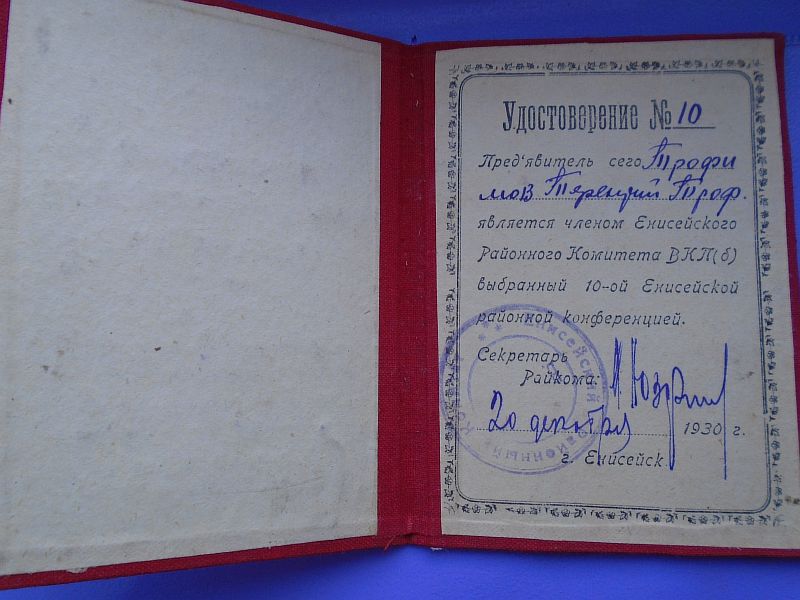 Удостоверение № 10
Пред'явитель сего Трофи
мов Терентий Троф.
является членом Енисейского
Районного Комитета ВКП(б)
выбранный 10-ой Енисейской
районной конференцией.
Секретарь
Райкома:
20 декабря 1930 г.
г. Енисейск
Енисейский районный